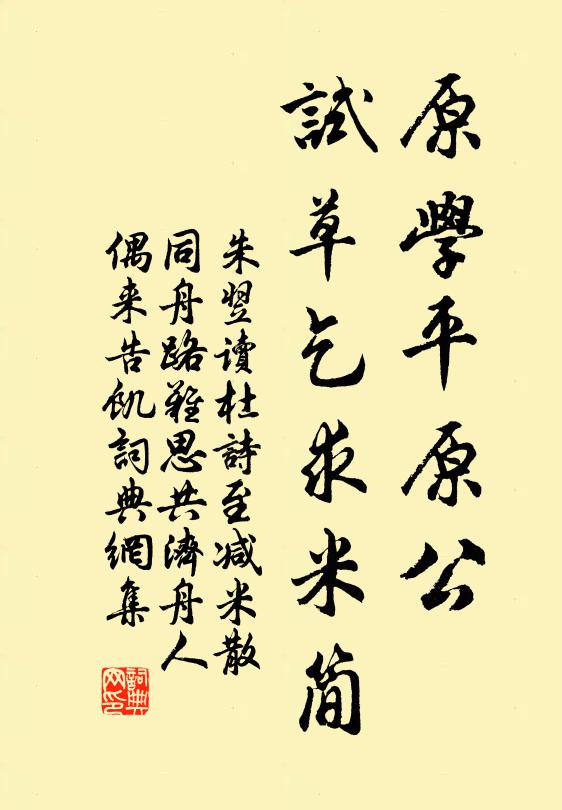 原學平原公
試草乞求米簡
朱翌讀杜詩至减米散
同舟路難思共濟舟人
偶来告飢詞典網集
詞典
网印